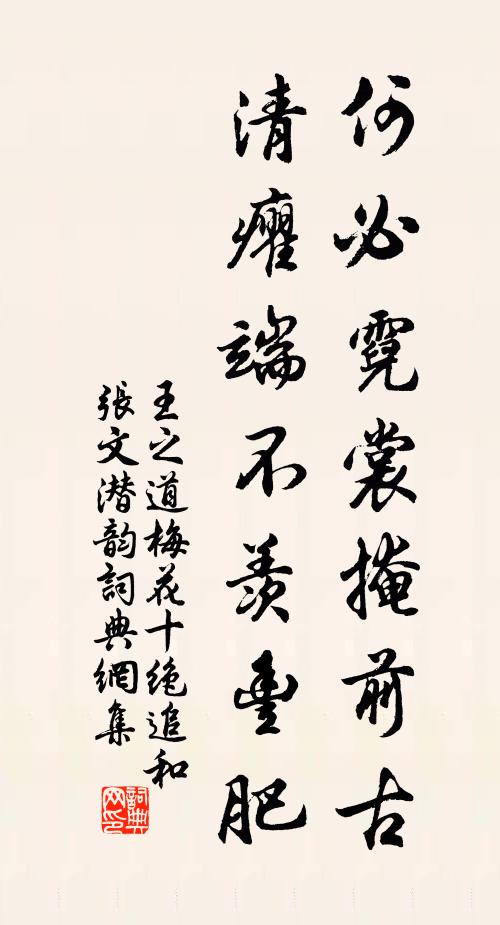 何必霓裳掩前古
清癯端不羨豐肥
王之道梅花十絶追和
張文潛韵詞典網集
詞典网印